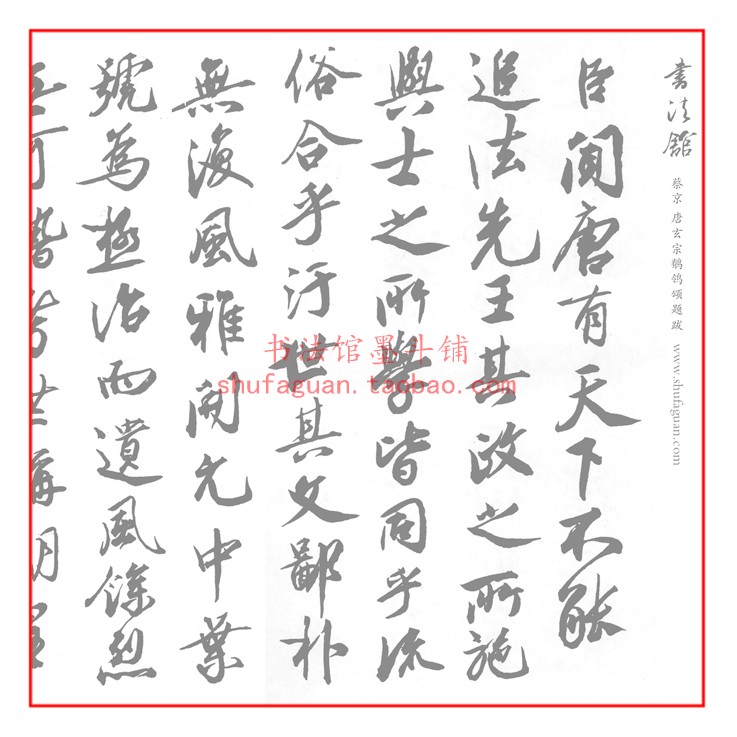 書法舘
蔡京 唐玄宗鹡鸰颂题跋 www.shufaguan.com
臣聞唐有天下不能
追法先王其政之所施
與士之所學皆同乎流
俗合乎汙世其文鄙朴
無復風雅開元中業
號為極治而遺風餘烈
可世稱明
书法馆墨斗铺
shufaguan.taobao.com